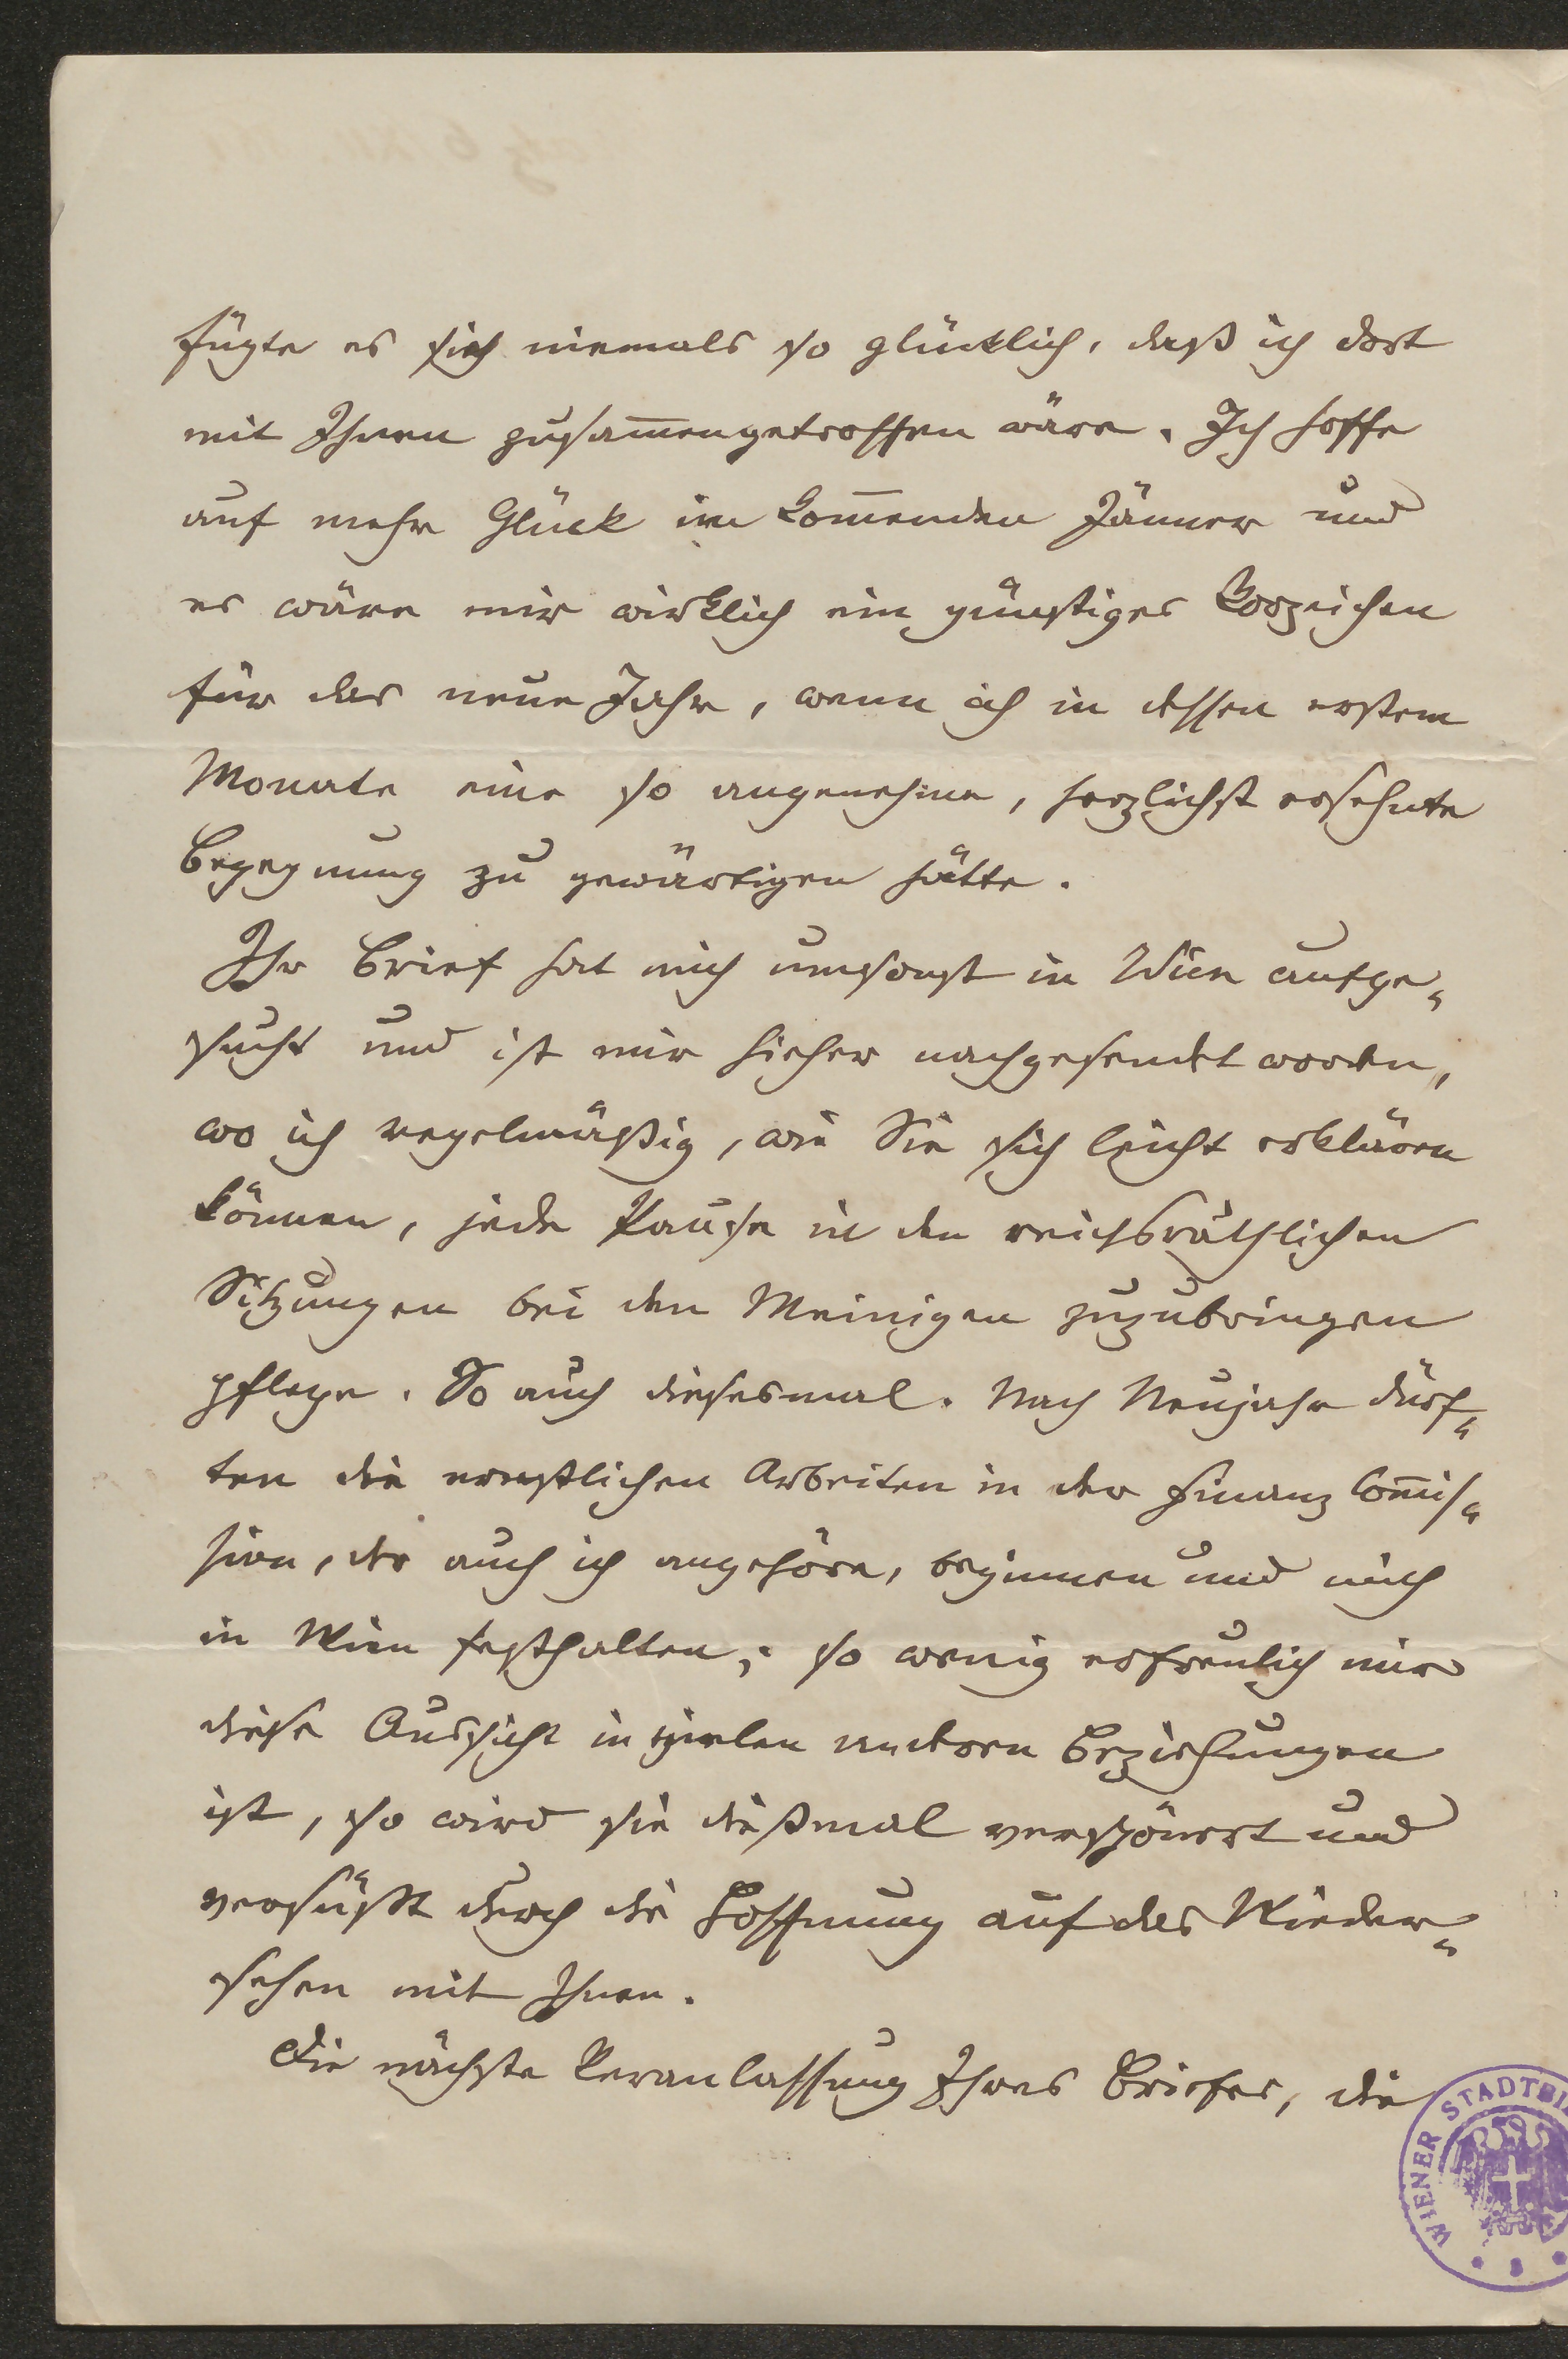 fügte es sich niemals so glücklich, daß ich dort
mit Ihnen zusam̅engetroffen wäre. Ich hoffe
auf mehr Glück im kom̅enden Jänner und
es wäre mir wirklich ein günstiges Vorzeichen
für das neue Jahr, wenn ich in dessen erstem
Monate eine so angenehme, herzlichst ersehnte
Begegnung zu gewärtigen hätte.
Ihr Brief hat mich umsonst in Wien aufge-
sucht und ist mir hieher nachgesendet worden,
wo ich regelmäßig, wie Sie sich leicht erklären
können, jede Pause in den reichsräthlichen
Sitzungen bei den Meinigen zuzubringen
pflege. So auch diesesmal. Nach Neujahr dürf-
ten die ernstlichen Arbeiten in der Finanz Com̅is-
sion, der auch ich angehöre, beginnen und mich
in Wien festhalten; so wenig erfreulich mir
diese Aussicht in vielen anderen Beziehungen
ist, so wird sie dießmal verschönert und
versüßt durch die Hoffnung auf das Wieder-
sehen mit Ihnen.
Die nächste Veranlassung Ihres Briefes, die
WIENER STADTBI